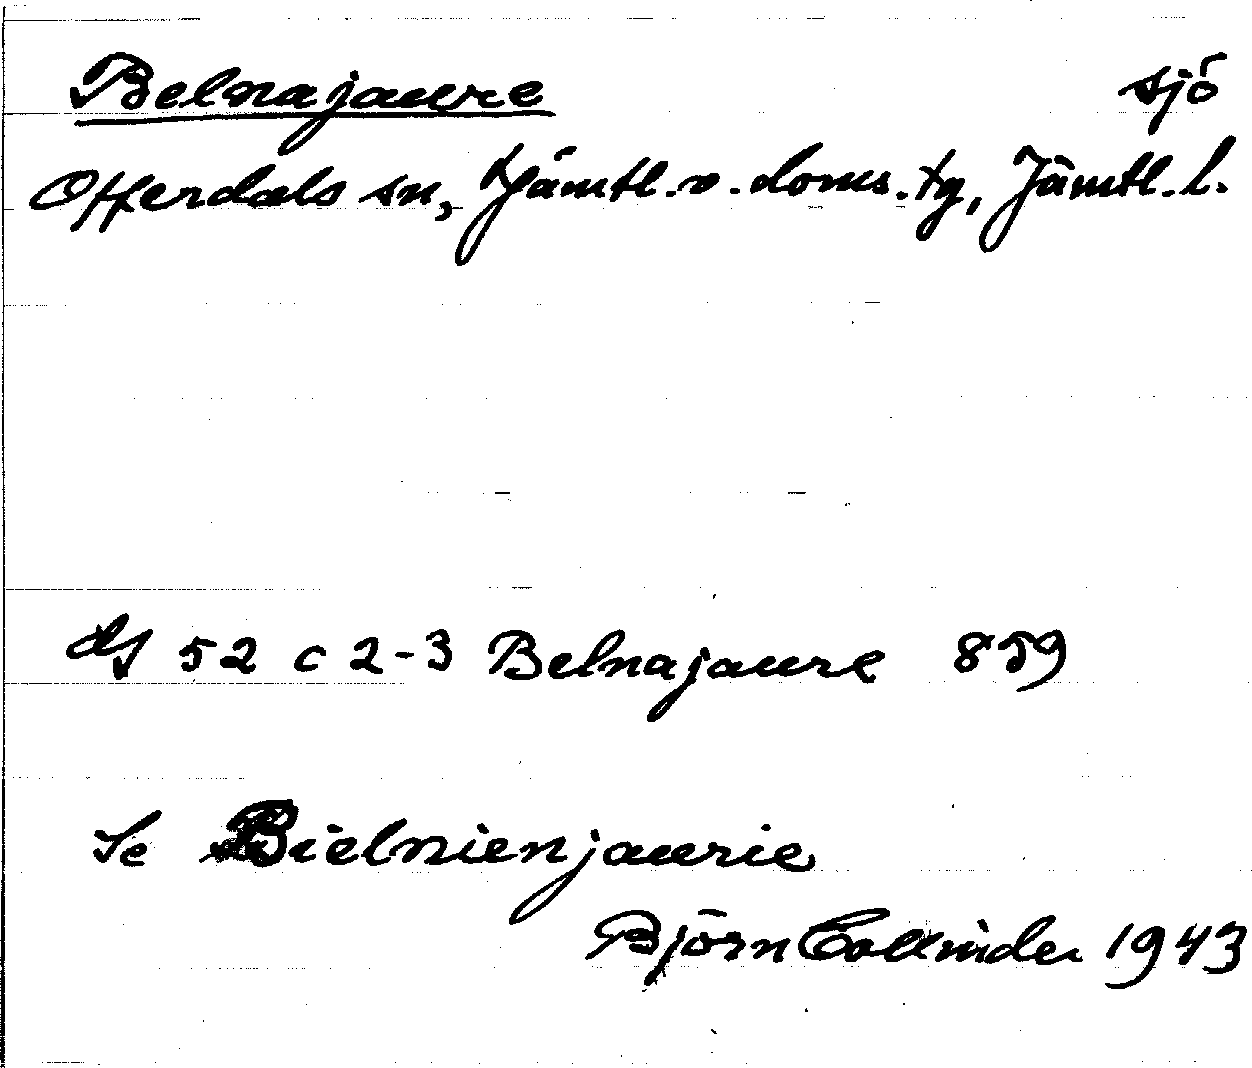 Belnajaure sjö
Offerdals sn, Jämtl. v. doms. tg, Jämtl. l.
GS 52 c 2-3 Belnajaure 859
Se Bielnienjaurie
Björn Collinder 1943